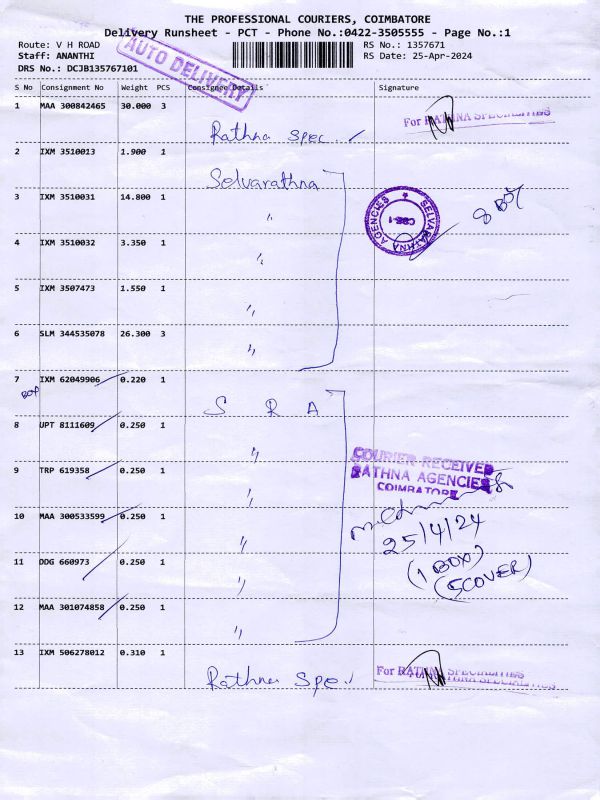 THE PROFESSIONAL COURIERS, COIMBATORE
Delivery Runsheet - PCT - Phone No.:0422-3505555 - Page No.:1
Route: V H ROAD
RS No.: 1357671
Staff: ANANTHI
RS Date: 25-Apr-2024
DRS No.: DCJB135767101
AUTO DELIVERY
S No Consignment No Weight PCS Consignee Details Signature
1 MAA 300842465 30.000 3
For RATHNA SPECIALITIES
Rathna Spec
2 IXM 3510013 1.900 1
Selvarathna
3 IXM 3510031 14.800 1
"
SELVARATHNA AGENCIES
CBE-1
8 Box
4 IXM 3510032 3.350 1
"
5 IXM 3507473 1.550 1
"
6 SLM 344535078 26.300 3
"
7 IXM 62049906 0.220 1
Box
S R A
8 UPT 8111609 0.250 1
"
COURIER RECEIVED
RATHNA AGENCIES
COIMBATORE
9 TRP 619358 0.250 1
"
10 MAA 300533599 0.250 1
"
25/4/24
11 DDG 660973 0.250 1
"
(1 BOX)
(5COVER)
12 MAA 301074858 0.250 1
"
13 IXM 506278012 0.310 1
Rathna Spe
For RATHNA SPECIALITIES